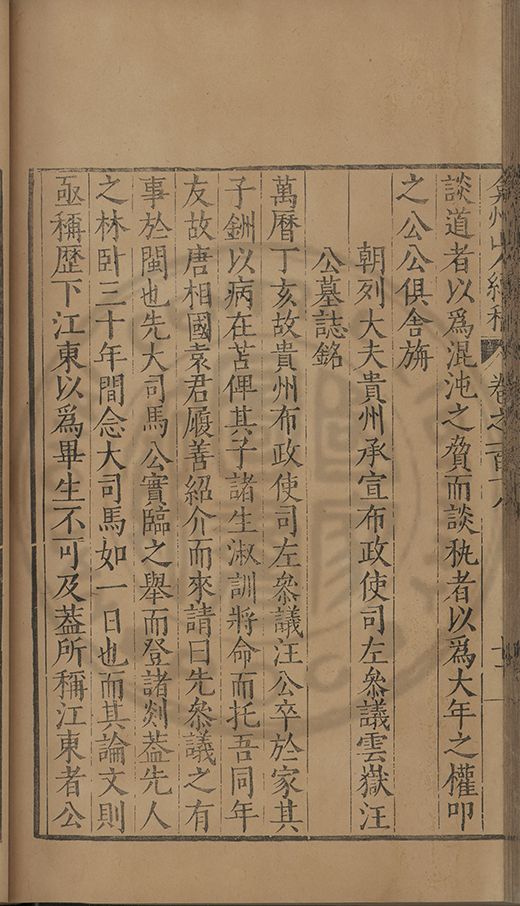 弇州山人續稿 卷之一百十八 十一
談道者以為混沌之胷而談執者以為大年之權叩
之公公俱舍旃
朝列大夫貴州承宣布政使司左叅議雲嶽汪
公墓誌銘
萬曆丁亥故貴州布政使司左叅議汪公卒於家其
子鉶以病在苫俾其子諸生淑訓將命而托吾同年
友故唐相國袁君履善紹介而來請曰先叅議之有
事於閩也先大司馬公實臨之舉而登諸剡葢先人
之林卧三十年間念大司馬如一日也而其論文則
亟稱歷下江東以為畢生不可及葢所稱江東者公